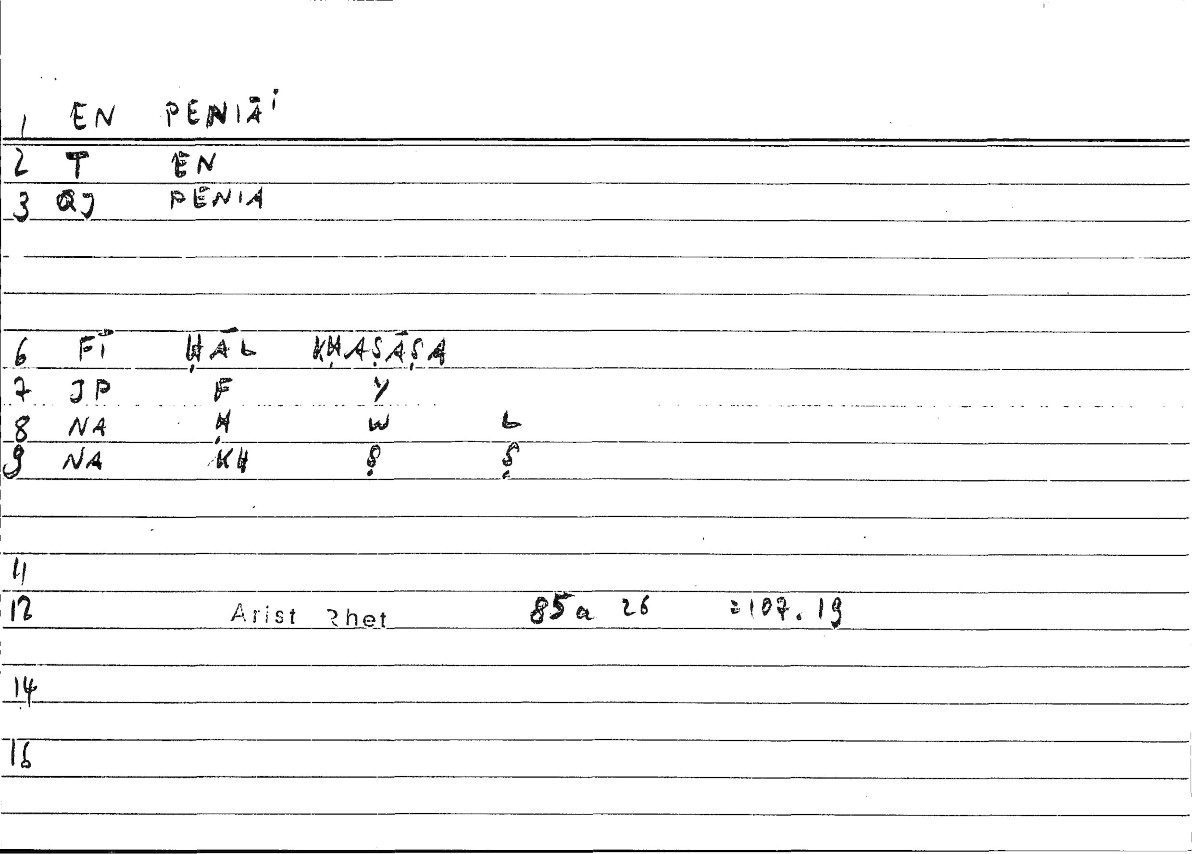 1 EN PENIĀⁱ
2 T EN
3 QJ PENIA
6 FĪ ḤĀL KḤAṢĀṢA
7 JP F Y
8 NA Ḥ W L
9 NA KH Ṣ Ṣ
11
12 Arist Rhet 85a 26 =107.19
14
16